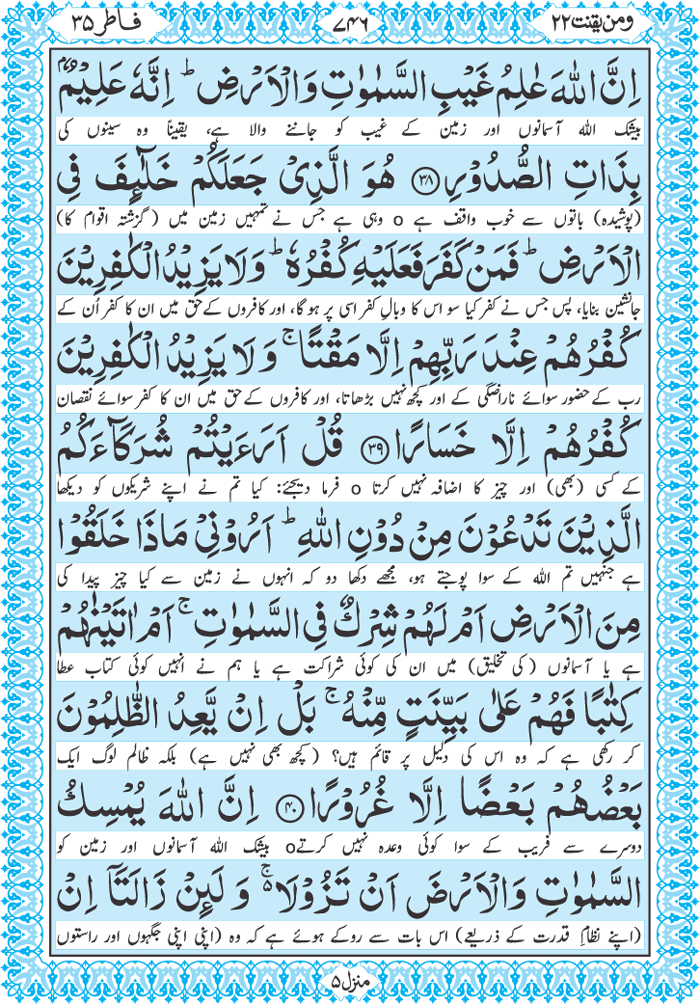 ومن یقنت ۲۲
۷۴۶
فاطر ۳۵
اِنَّ اللّٰهَ عٰلِمُ غَیْبِ السَّمٰوٰتِ وَالْاَرْضِ ؕ اِنَّهٗ عَلِیْمٌۢ
بیشک اللہ آسمانوں اور زمین کے غیب کو جاننے والا ہے، یقیناً وہ سینوں کی
بِذَاتِ الصُّدُوْرِ ﴿۳۸﴾ هُوَ الَّذِیْ جَعَلَكُمْ خَلٰٓئِفَ فِی
(پوشیدہ) باتوں سے خوب واقف ہے o وہی ہے جس نے تمہیں زمین میں (گزشتہ اقوام کا)
الْاَرْضِ ؕ فَمَنْ كَفَرَ فَعَلَیْهِ كُفْرُهٗ ؕ وَلَا یَزِیْدُ الْكٰفِرِیْنَ
جانشین بنایا، پس جس نے کفر کیا سو اس کا وبالِ کفر اسی پر ہو گا، اور کافروں کے حق میں ان کا کفر اُن کے
كُفْرُهُمْ عِنْدَ رَبِّهِمْ اِلَّا مَقْتًا ۚ وَلَا یَزِیْدُ الْكٰفِرِیْنَ
رب کے حضور سوائے ناراضگی کے اور کچھ نہیں بڑھاتا، اور کافروں کے حق میں ان کا کفر سوائے نقصان
كُفْرُهُمْ اِلَّا خَسَارًا ﴿۳۹﴾ قُلْ اَرَءَیْتُمْ شُرَكَآءَكُمُ
کے کسی (بھی) اور چیز کا اضافہ نہیں کرتا o فرما دیجئے: کیا تم نے اپنے شریکوں کو دیکھا
الَّذِیْنَ تَدْعُوْنَ مِنْ دُوْنِ اللّٰهِ ؕ اَرُوْنِیْ مَاذَا خَلَقُوْا
ہے جنہیں تم اللہ کے سوا پوجتے ہو، مجھے دکھا دو کہ انہوں نے زمین سے کیا چیز پیدا کی
مِنَ الْاَرْضِ اَمْ لَهُمْ شِرْكٌ فِی السَّمٰوٰتِ ۚ اَمْ اٰتَیْنٰهُمْ
ہے یا آسمانوں (کی تخلیق) میں ان کی کوئی شراکت ہے یا ہم نے انہیں کوئی کتاب عطا
كِتٰبًا فَهُمْ عَلٰی بَیِّنَتٍ مِّنْهُ ۚ بَلْ اِنْ یَّعِدُ الظّٰلِمُوْنَ
کر رکھی ہے کہ وہ اس کی دلیل پر قائم ہیں؟ (کچھ بھی نہیں ہے) بلکہ ظالم لوگ ایک
بَعْضُهُمْ بَعْضًا اِلَّا غُرُوْرًا ﴿۴۰﴾ اِنَّ اللّٰهَ یُمْسِكُ
دوسرے سے فریب کے سوا کوئی وعدہ نہیں کرتے o بیشک اللہ آسمانوں اور زمین کو
السَّمٰوٰتِ وَالْاَرْضَ اَنْ تَزُوْلَا ۬ۚ وَلَىِٕنْ زَالَتَاۤ اِنْ
(اپنے نظامِ قدرت کے ذریعے) اس بات سے روکے ہوئے ہے کہ وہ (اپنی اپنی جگہوں اور راستوں
منزل ۵